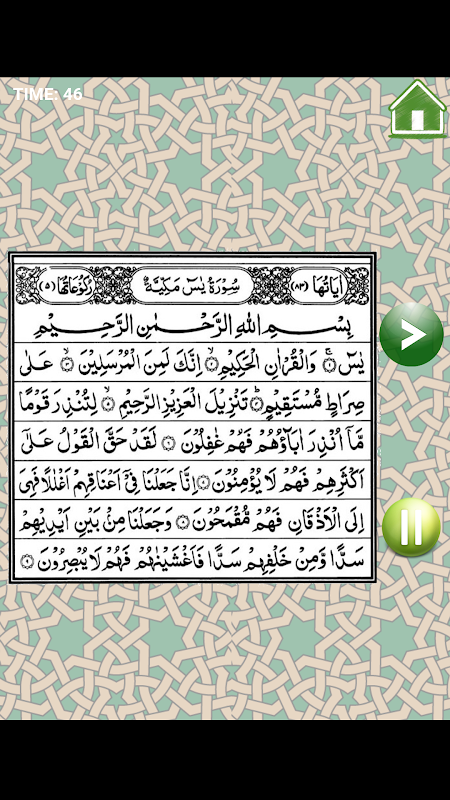 TIME: 46
اٰيَاتُهَا (٨٣) سُوْرَةُ يٰسٓ مَكِّيَّةٌ رُكُوْعَاتُهَا (٥)
بِسْمِ اللّٰهِ الرَّحْمٰنِ الرَّحِيْمِ
يٰسٓ ۝١ وَالْقُرْاٰنِ الْحَكِيْمِ ۝٢ اِنَّكَ لَمِنَ الْمُرْسَلِيْنَ ۝٣ عَلٰى
صِرَاطٍ مُّسْتَقِيْمٍ ۝٤ تَنْزِيْلَ الْعَزِيْزِ الرَّحِيْمِ ۝٥ لِتُنْذِرَ قَوْمًا
مَّاۤ اُنْذِرَ اٰبَآؤُهُمْ فَهُمْ غٰفِلُوْنَ ۝٦ لَقَدْ حَقَّ الْقَوْلُ عَلٰۤى
اَكْثَرِهِمْ فَهُمْ لَا يُؤْمِنُوْنَ ۝٧ اِنَّا جَعَلْنَا فِيْۤ اَعْنَاقِهِمْ اَغْلٰلًا فَهِيَ
اِلَى الْاَذْقَانِ فَهُمْ مُّقْمَحُوْنَ ۝٨ وَجَعَلْنَا مِنْۢ بَيْنِ اَيْدِيْهِمْ
سَدًّا وَّمِنْ خَلْفِهِمْ سَدًّا فَاَغْشَيْنٰهُمْ فَهُمْ لَا يُبْصِرُوْنَ ۝٩